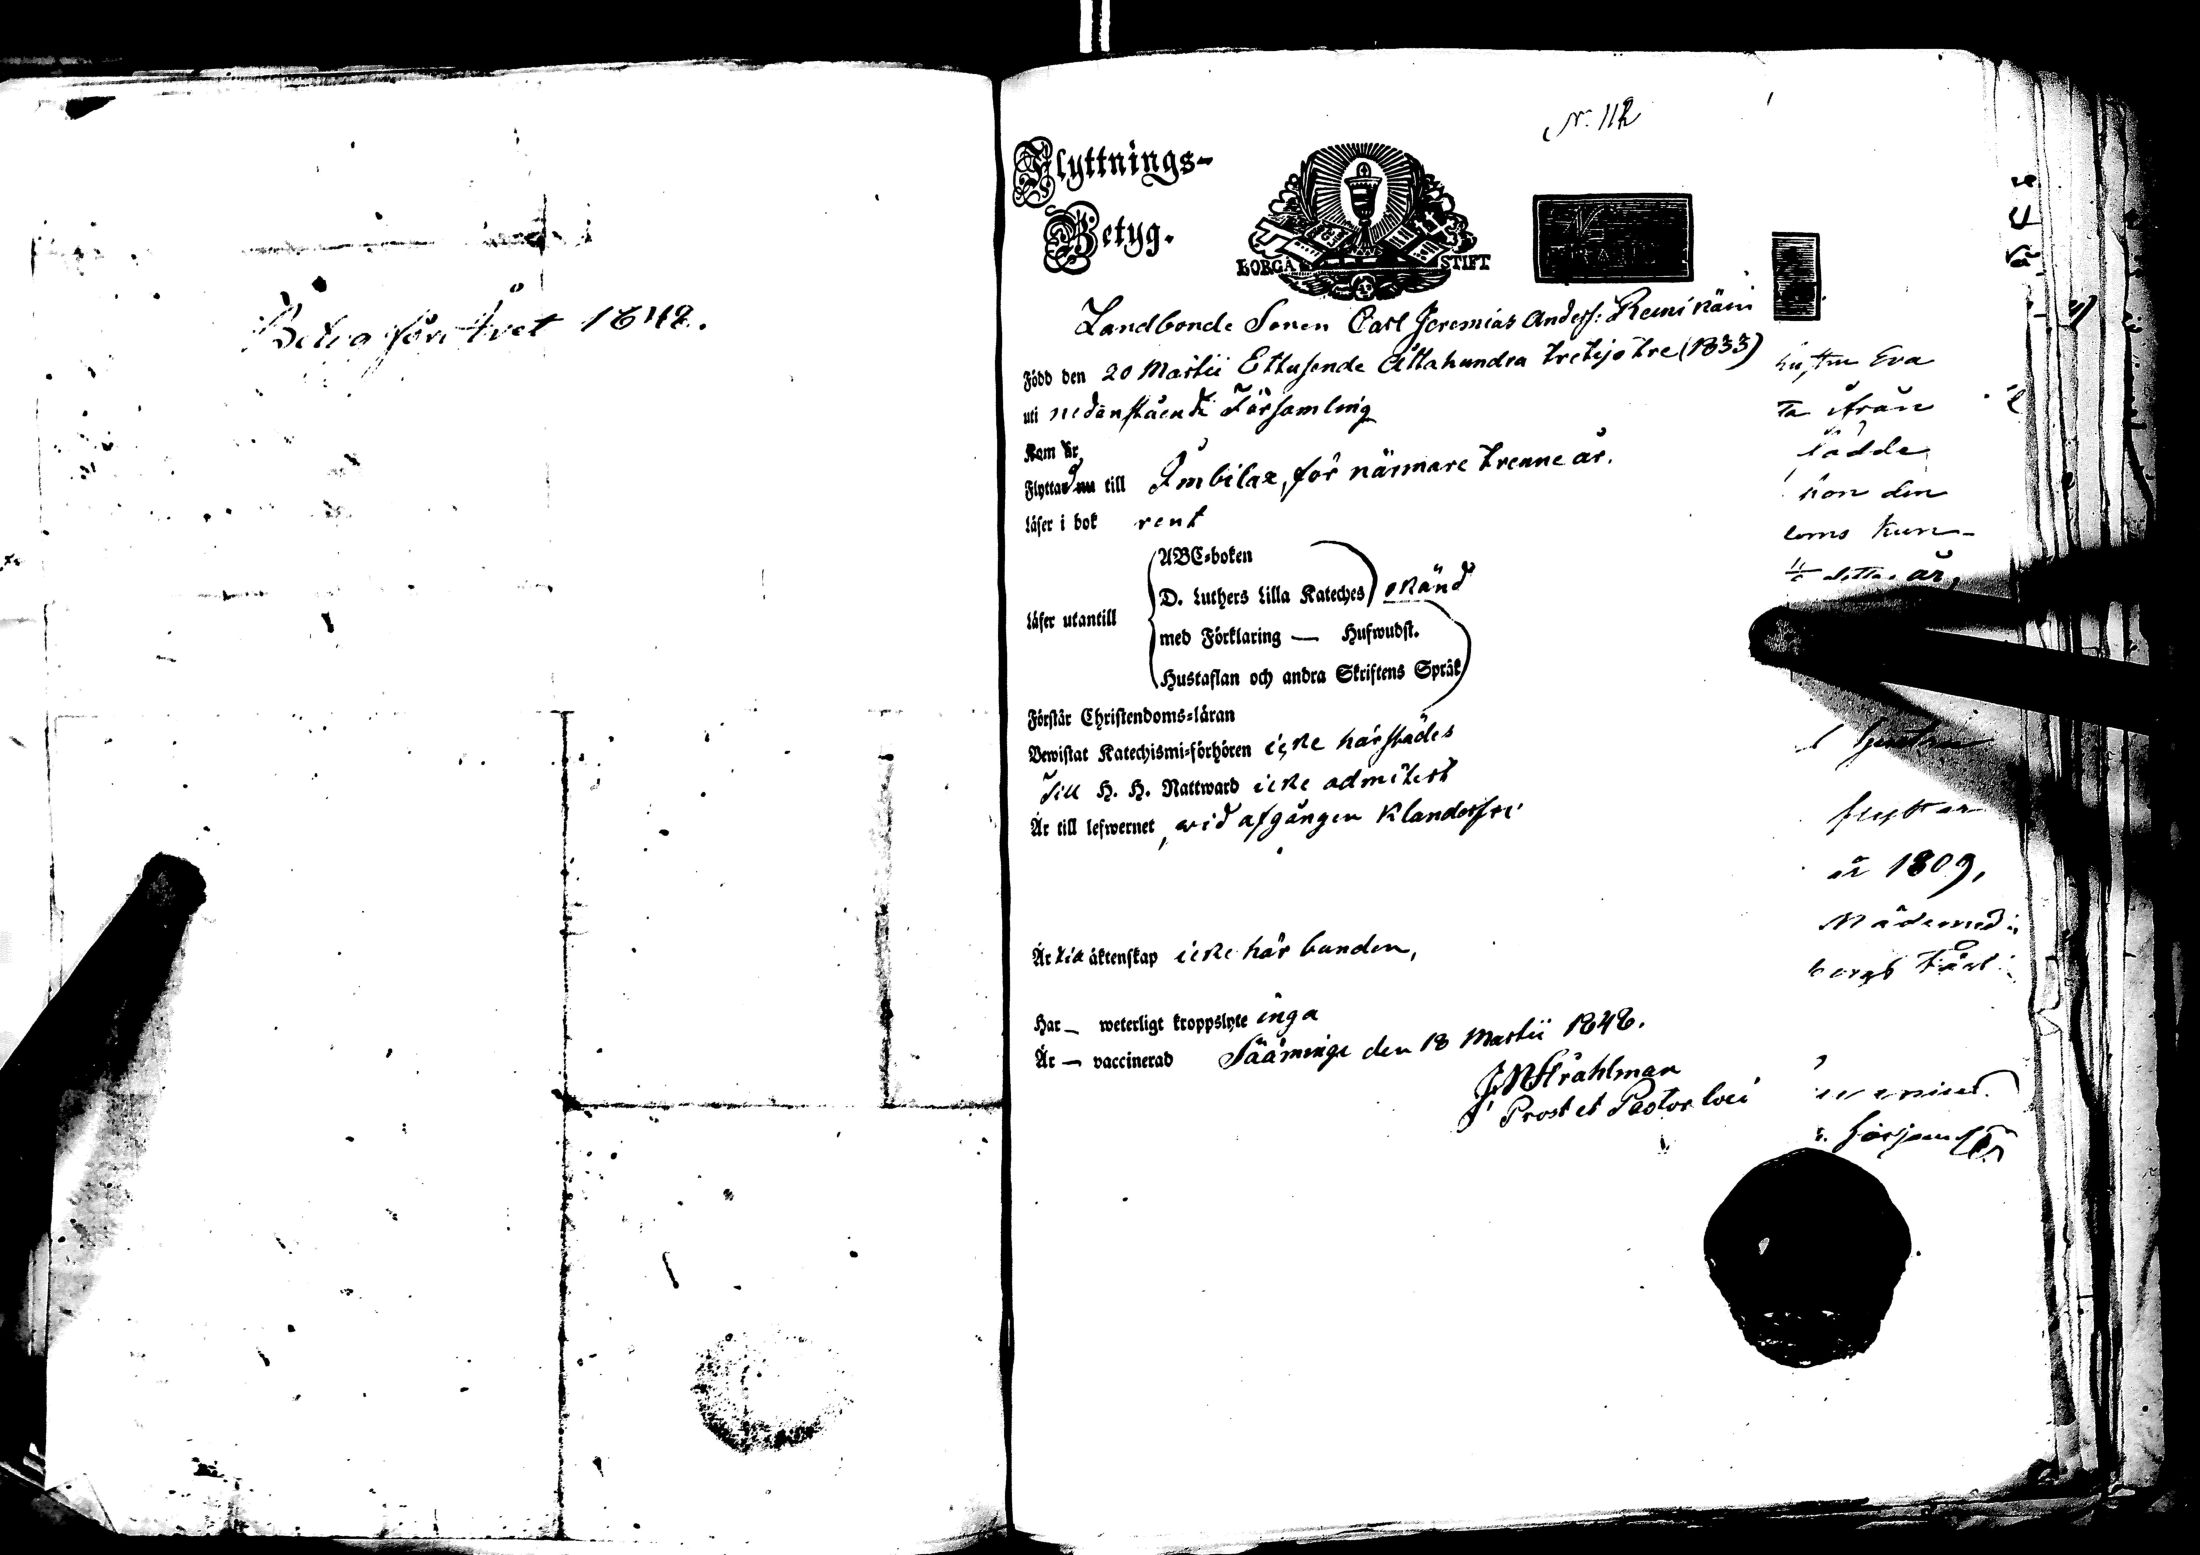 Betyg för Året 1848.
N. 112
Flyttnings-
Betyg.
BORGA STIFT
Landbonde Sonen Carl Jeremias Anders: Reinikäin
Född den 20 Martii Ettusende Åttahundra trettijo tre (1833)
uti nedanstående Församling
Kom hr
Flyttade nu till Imbilax, för närmare trenne år.
Läser i bok rent
Läser utantill
ABC-boken
D. Luthers Lilla Kateches okänd
med Förklaring — Hufwudst.
Hustaflan och andra Skriftens Språk
Förstår Christendoms-läran
Bewistat Katechismi-förhören icke härstädes
Till H. H. Nattward icke admitterd
Är till lefwernet, wid afgången klanderfri
Är till äktenskap icke här bunden,
Har — weterligt kroppslyte inga
Är — vaccinerad Sääminge den 18 Martii 1848.
J. N. Stråhlman
Prost et Pastor loci
hustru Eva
ifrån
födde
hon den
doms kun-
detta år,
flyttar
år 1809,